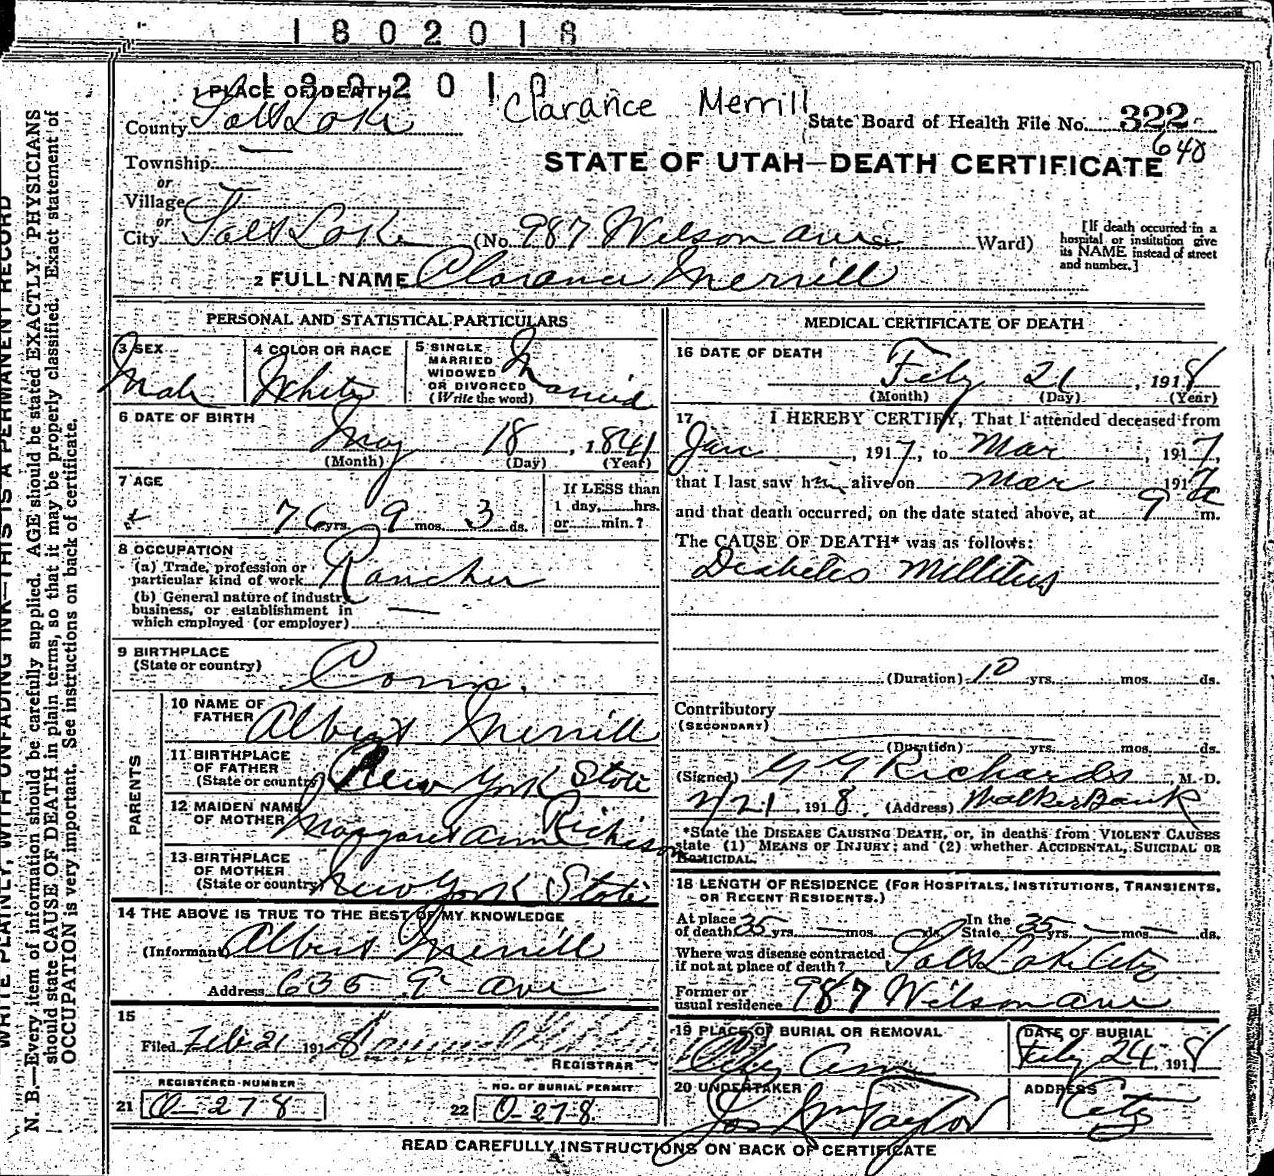 1802018
1 PLACE OF DEATH 1802018
Clarance Merrill
County Salt Lake
State Board of Health File No. 322
640
Township
or
STATE OF UTAH—DEATH CERTIFICATE
Village
or
City Salt Lake (No. 987 Wilson ave St., Ward)
[If death occurred in a
hospital or institution give
its NAME instead of street
and number.]
2 FULL NAME Clarance Merrill
PERSONAL AND STATISTICAL PARTICULARS
3 SEX
Male
4 COLOR OR RACE
White
5 SINGLE
MARRIED
WIDOWED
OR DIVORCED
(Write the word)
Married
6 DATE OF BIRTH
May 18, 1841
(Month) (Day) (Year)
7 AGE
76 yrs. 9 mos. 3 ds.
If LESS than
1 day, hrs.
or min.?
8 OCCUPATION
(a) Trade, profession or
particular kind of work Rancher
(b) General nature of industry,
business, or establishment in
which employed (or employer)
9 BIRTHPLACE
(State or country) Conn.
PARENTS
10 NAME OF
FATHER Albert Merrill
11 BIRTHPLACE
OF FATHER
(State or country) New York State
12 MAIDEN NAME
OF MOTHER Margaret Ann Richison
13 BIRTHPLACE
OF MOTHER
(State or country) New York State
14 THE ABOVE IS TRUE TO THE BEST OF MY KNOWLEDGE
(Informant) Albert Merrill
Address 635 9" ave
15
Filed Feb 21 1918
REGISTRAR
REGISTERED NUMBER
21 O-278
NO. OF BURIAL PERMIT
22 O-278
MEDICAL CERTIFICATE OF DEATH
16 DATE OF DEATH
Feby 21, 1918
(Month) (Day) (Year)
17 I HEREBY CERTIFY, That I attended deceased from
Jan, 1917, to Mar, 1917,
that I last saw him alive on Mar 1917
and that death occurred, on the date stated above, at 9 a m.
The CAUSE OF DEATH* was as follows:
Diabetis Millitus
(Duration) 10 yrs. mos. ds.
Contributory
(SECONDARY)
(Duration) yrs. mos. ds.
(Signed) G G Richards, M. D.
2/21, 1918. (Address) Walker Bank
*State the DISEASE CAUSING DEATH, or, in deaths from VIOLENT CAUSES
state (1) MEANS OF INJURY; and (2) whether ACCIDENTAL, SUICIDAL OR
HOMICIDAL.
18 LENGTH OF RESIDENCE (FOR HOSPITALS, INSTITUTIONS, TRANSIENTS,
OR RECENT RESIDENTS.)
At place
of death 35 yrs. mos. ds.
In the
State 35 yrs. mos. ds.
Where was disease contracted
if not at place of death? Salt Lake City
Former or
usual residence 987 Wilson ave
19 PLACE OF BURIAL OR REMOVAL
City Cem
DATE OF BURIAL
Feby 24, 1918
20 UNDERTAKER
Jos Wm Taylor
ADDRESS
City
READ CAREFULLY INSTRUCTIONS ON BACK OF CERTIFICATE
WRITE PLAINLY, WITH UNFADING INK—THIS IS A PERMANENT RECORD
N. B.—Every item of information should be carefully supplied. AGE should be stated EXACTLY. PHYSICIANS
should state CAUSE OF DEATH in plain terms, so that it may be properly classified. Exact statement of
OCCUPATION is very important. See instructions on back of certificate.